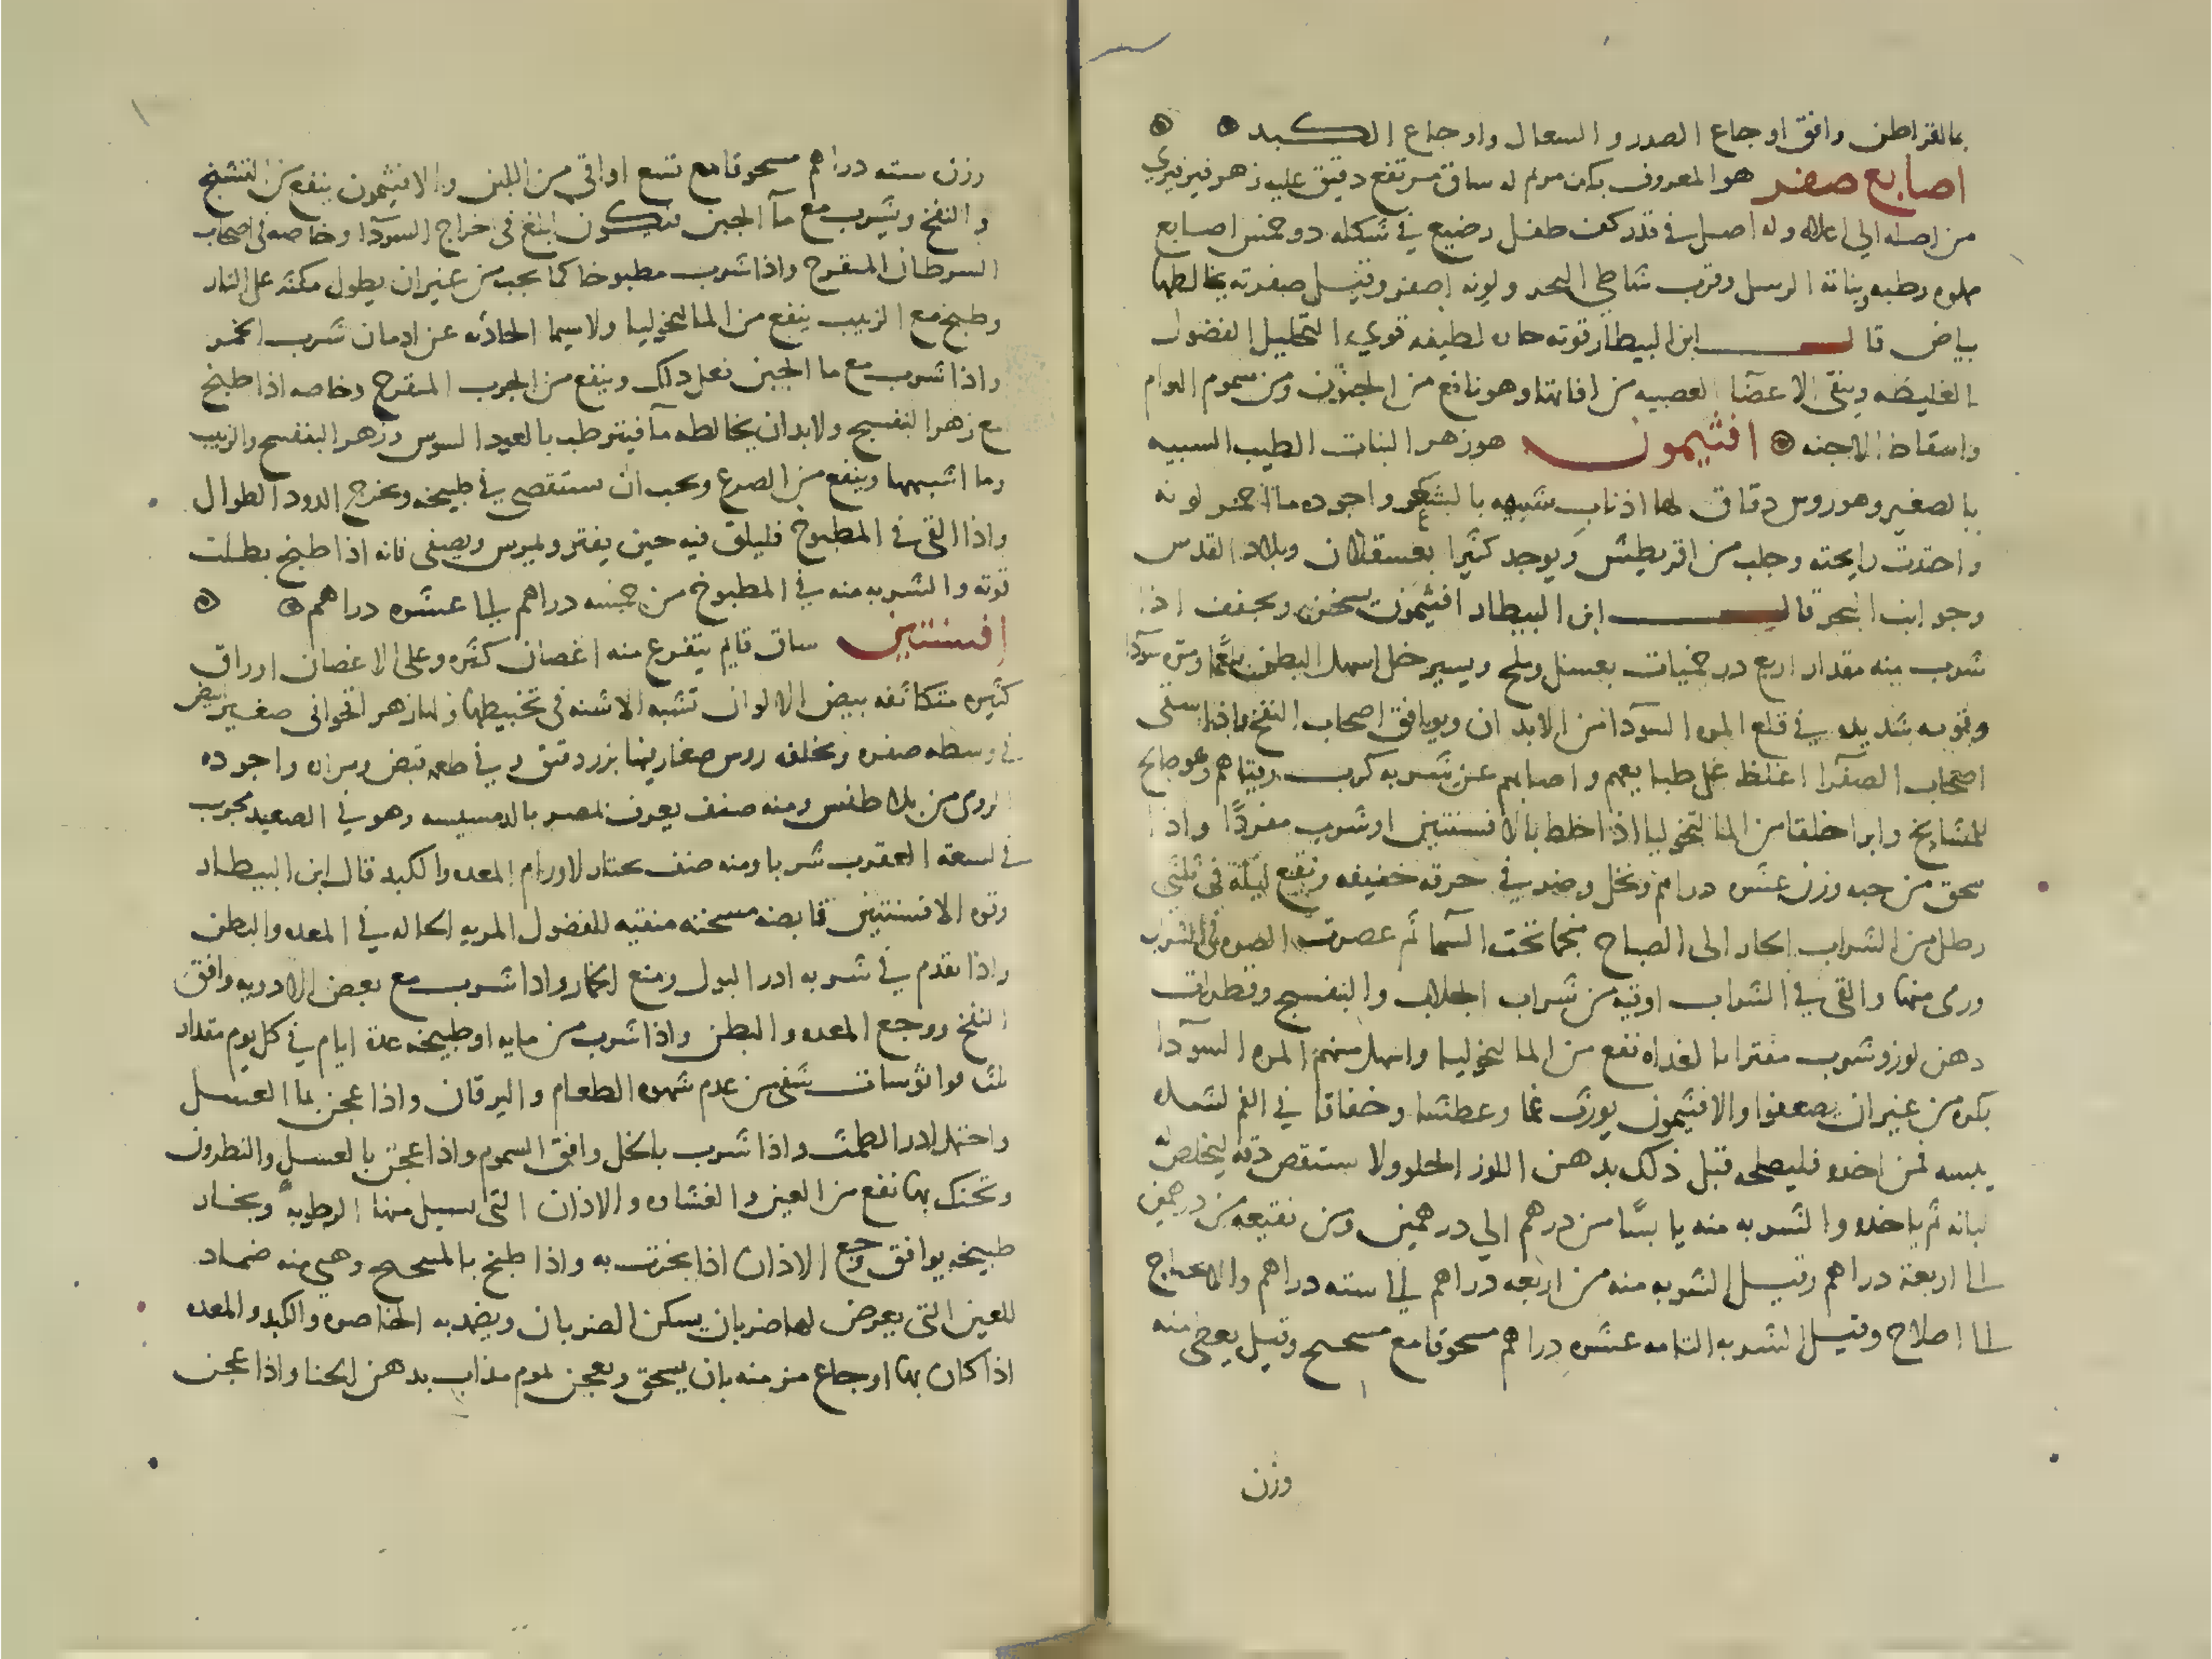 بمالقراطن وافق اوجاع الصدر والسعال واوجاع الكبد
اصابع صفر هو المعروف بكف مريم له ساق مرتفع دقيق عليه زهر فيرفيري
من اصله الي اعلاه وله اصل في قدر كف طفل رضيع في شكله ذو خمس اصابع
مملوه رطبه ونباته الرمل وقرب شاطي البحر ولونه اصفر وقيل صفرته يخالطها
بياض قال ابن البيطار قوته حاره لطيفه قوية التحليل الفضول
الغليظه وينقى الاعضآ العصبيه من افاتها وهو نافع من الجنون ومن سموم الهوام
واسقاط الاجنه افثيمون هو زهر النبات الطيب الشبيه
بالصغير وهو روس دقاق لها اذناب شبيهه بالشعر واجوده ما احمر لونه
واحتدت رايحته وجلب من اقريطش ويوجد كثيرا بعسقلان وبلاد القدس
وجوانب البحر قال ابن البيطار افثيمون يسخن ويجفف اذا
شرب منه مقدار اربع درخميات بعسل وملح ويسير خل اسهل البطن بلغما ومره سودآ
وبقوه شديده في قلع المره السودآ من الابدان ويوافق اصحاب النفخ واذا سقى
اصحاب الصفرآ اغلظ على طبايعهم واصابهم عن شربه كرب وقياهم وهو صالح
للمشايخ وابرا خلقا من المالنخوليا اذا خلط بالافسنتين او شرب مفردًا واذا
سحق من حبه وزن عشره دراهم ونخل وصير في خرقه خفيفه ونقع ليلة في ثلثى
رطل من الشراب الحار الى الصباح منجما تحت السمآ ثم عصرت الصره فى الشراب
ورمى منها والقى في الشراب اوقيه من شراب الجلاب والبنفسج وقطرات
دهن لوز وشرب مفترا بالغداه نفع من المالنخوليا واسهل منهم المره السودآ
بكره من غير ان يضعفوا والافثيمون يورث غما وعطشا وجفافا في الفم لشده
يبسه فمن اخذه فليصلحه قبل ذلك بدهن اللوز الحلو ولا يستقص دقه ليخلص
لبابه ثم ياخذه والشربه منه يابسًا من درهم الي درهمين ومن نقيعه من درهمين
الى اربعة دراهم وقيل الشربه منه من اربعه دراهم الى سته دراهم ولا يحتاج
الى اصلاح وقيل الشربه التامه عشره دراهم مسحوقا مع وقيل يعطى منه
وزن
وزن سته دراهم مسحوقا مع تسع اواقى من اللبن والافثيمون ينفع من التشنج
والنفخ ويشرب مع مآ الجبن فيكون ابلغ فى اخراج السودآ وخاصه فى اصحاب
السرطان المتقرح واذا شرب مطبوخا كما يجب من غير ان يطول مكثه على النار
وطبخ مع الزبيب ينفع من المالنخوليا ولا سيما الحادثه عن ادمان شرب الخمر
واذا شرب مع ما الجبن فعل ذلك وينفع من الجرب المتقرح وخاصه اذا طبخ
مع زهر البنفسج ولابد ان يخالطه مآ فيترطب بالعود السوس وزهر البنفسج والزبيب
وما اشبهها وينفع من الصرع ويجب ان يستقصى في طبيخه ويخرج الدود الطوال
واذا القى فى المطبوخ فليلق فيه حين يفتر ويمرس ويصفى فانه اذا طبخ بطلت
قوته والشربه منه في المطبوخ من خمسه دراهم الى عشره دراهم
افسنتين ساق قايم يتفرع منه اغصان كثيره وعلى الاغصان اوراق
كثيره متكاثفه بيض الالوان تشبه الاشنه فى تخبيطها ولها زهر اقحوانى صغير ابيض
فى وسطه صفره ويخلفه روس صغار فيها بزر دقيق وفي طعمه قبض ومراره واجوده
الرومى من بلاد طفس ومنه صنف يعرف بمصر بالدمسيسه وهو في الصعيد مجرب
فى لسعة العقرب شربا ومنه صنف يختار لاورام المعده والكبد قال ابن البيطار
وقوه الافسنتين قابضه مسخنه منقيه للفضول المريه الحاله في المعده والبطن
واذا تقدم في شربه ادر البول ومنع الخمار واذا شرب مع بعض الادويه وافق
النفخ ووجع المعده والبطن واذا شرب من مايه او طبيخه عدة ايام في كل يوم مقدار
ثلث قواثوسات شفى من عدم شهوه الطعام واليرقان واذا عجن بما العسل
واحتمل ادر الطمث واذا شرب بالخل وافق السموم واذا عجن بالعسل والنطرون
وتحنك بها نفع من العين والغشاوه والاذان التى يسيل منها الرطوبة وبخار
طبيخه يوافق وجع الاذان اذا بخرت به واذا طبخ بالمسحح وهيى منه ضماد
للعين التى يعرض لها ضربان يسكن الضربان ويضمد به الخاصره والكبد والمعده
اذا كان بها اوجاع مزمنه بان يسحق ويعجن بموم مذاب بدهن الحنا واذا عجن